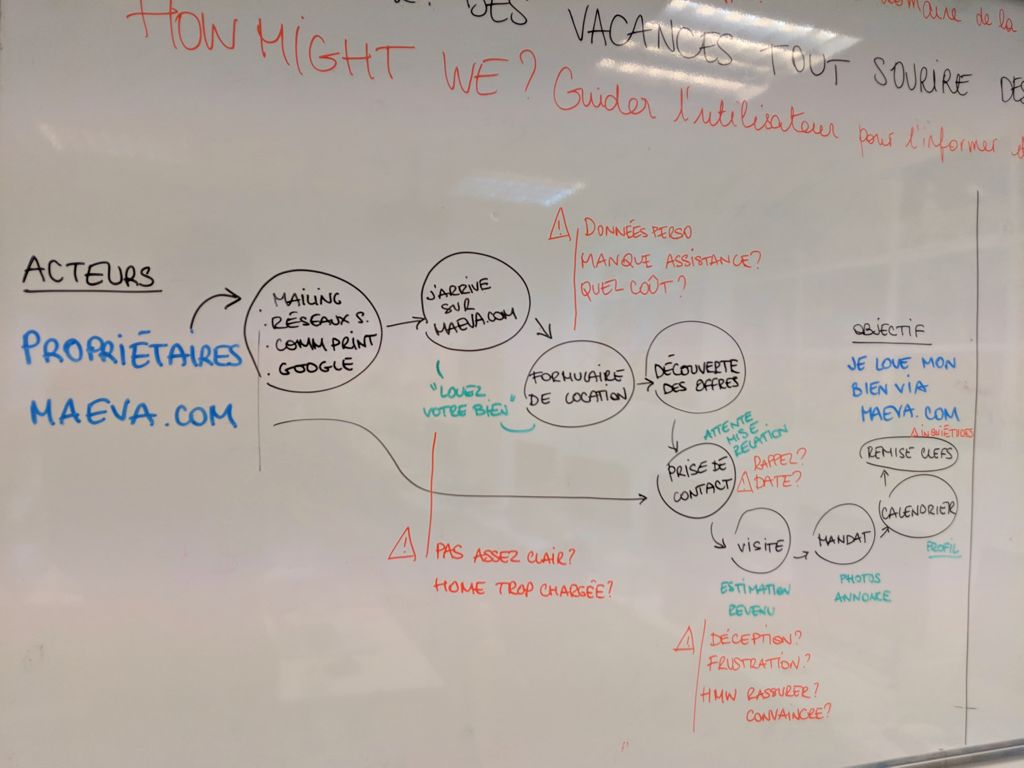 DES VACANCES TOUT SOURIRE DES
de la
HOW MIGHT WE? Guider l'utilisateur pour l'informer
ACTEURS
PROPRIÉTAIRES
MAEVA.COM
MAILING
. RÉSEAUX S.
. COMM PRINT
. GOOGLE
J'ARRIVE
SUR
MAEVA.COM
"LOUEZ
VOTRE BIEN"
⚠ DONNÉES PERSO
MANQUE ASSISTANCE?
QUEL COÛT?
FORMULAIRE
DE LOCATION
DÉCOUVERTE
DES OFFRES
ATTENTE
MISE
RELATION
PRISE DE
CONTACT
RAPPEL?
⚠ DATE?
⚠ PAS ASSEZ CLAIR?
HOME TROP CHARGÉE?
VISITE
ESTIMATION
REVENU
⚠ DÉCEPTION?
FRUSTRATION?
HMW RASSURER?
CONVAINCRE?
MANDAT
PHOTOS
ANNONCE
CALENDRIER
PROFIL
REMISE CLEFS
⚠ INQUIÉTUDES
OBJECTIF
JE LOUE MON
BIEN VIA
MAEVA.COM